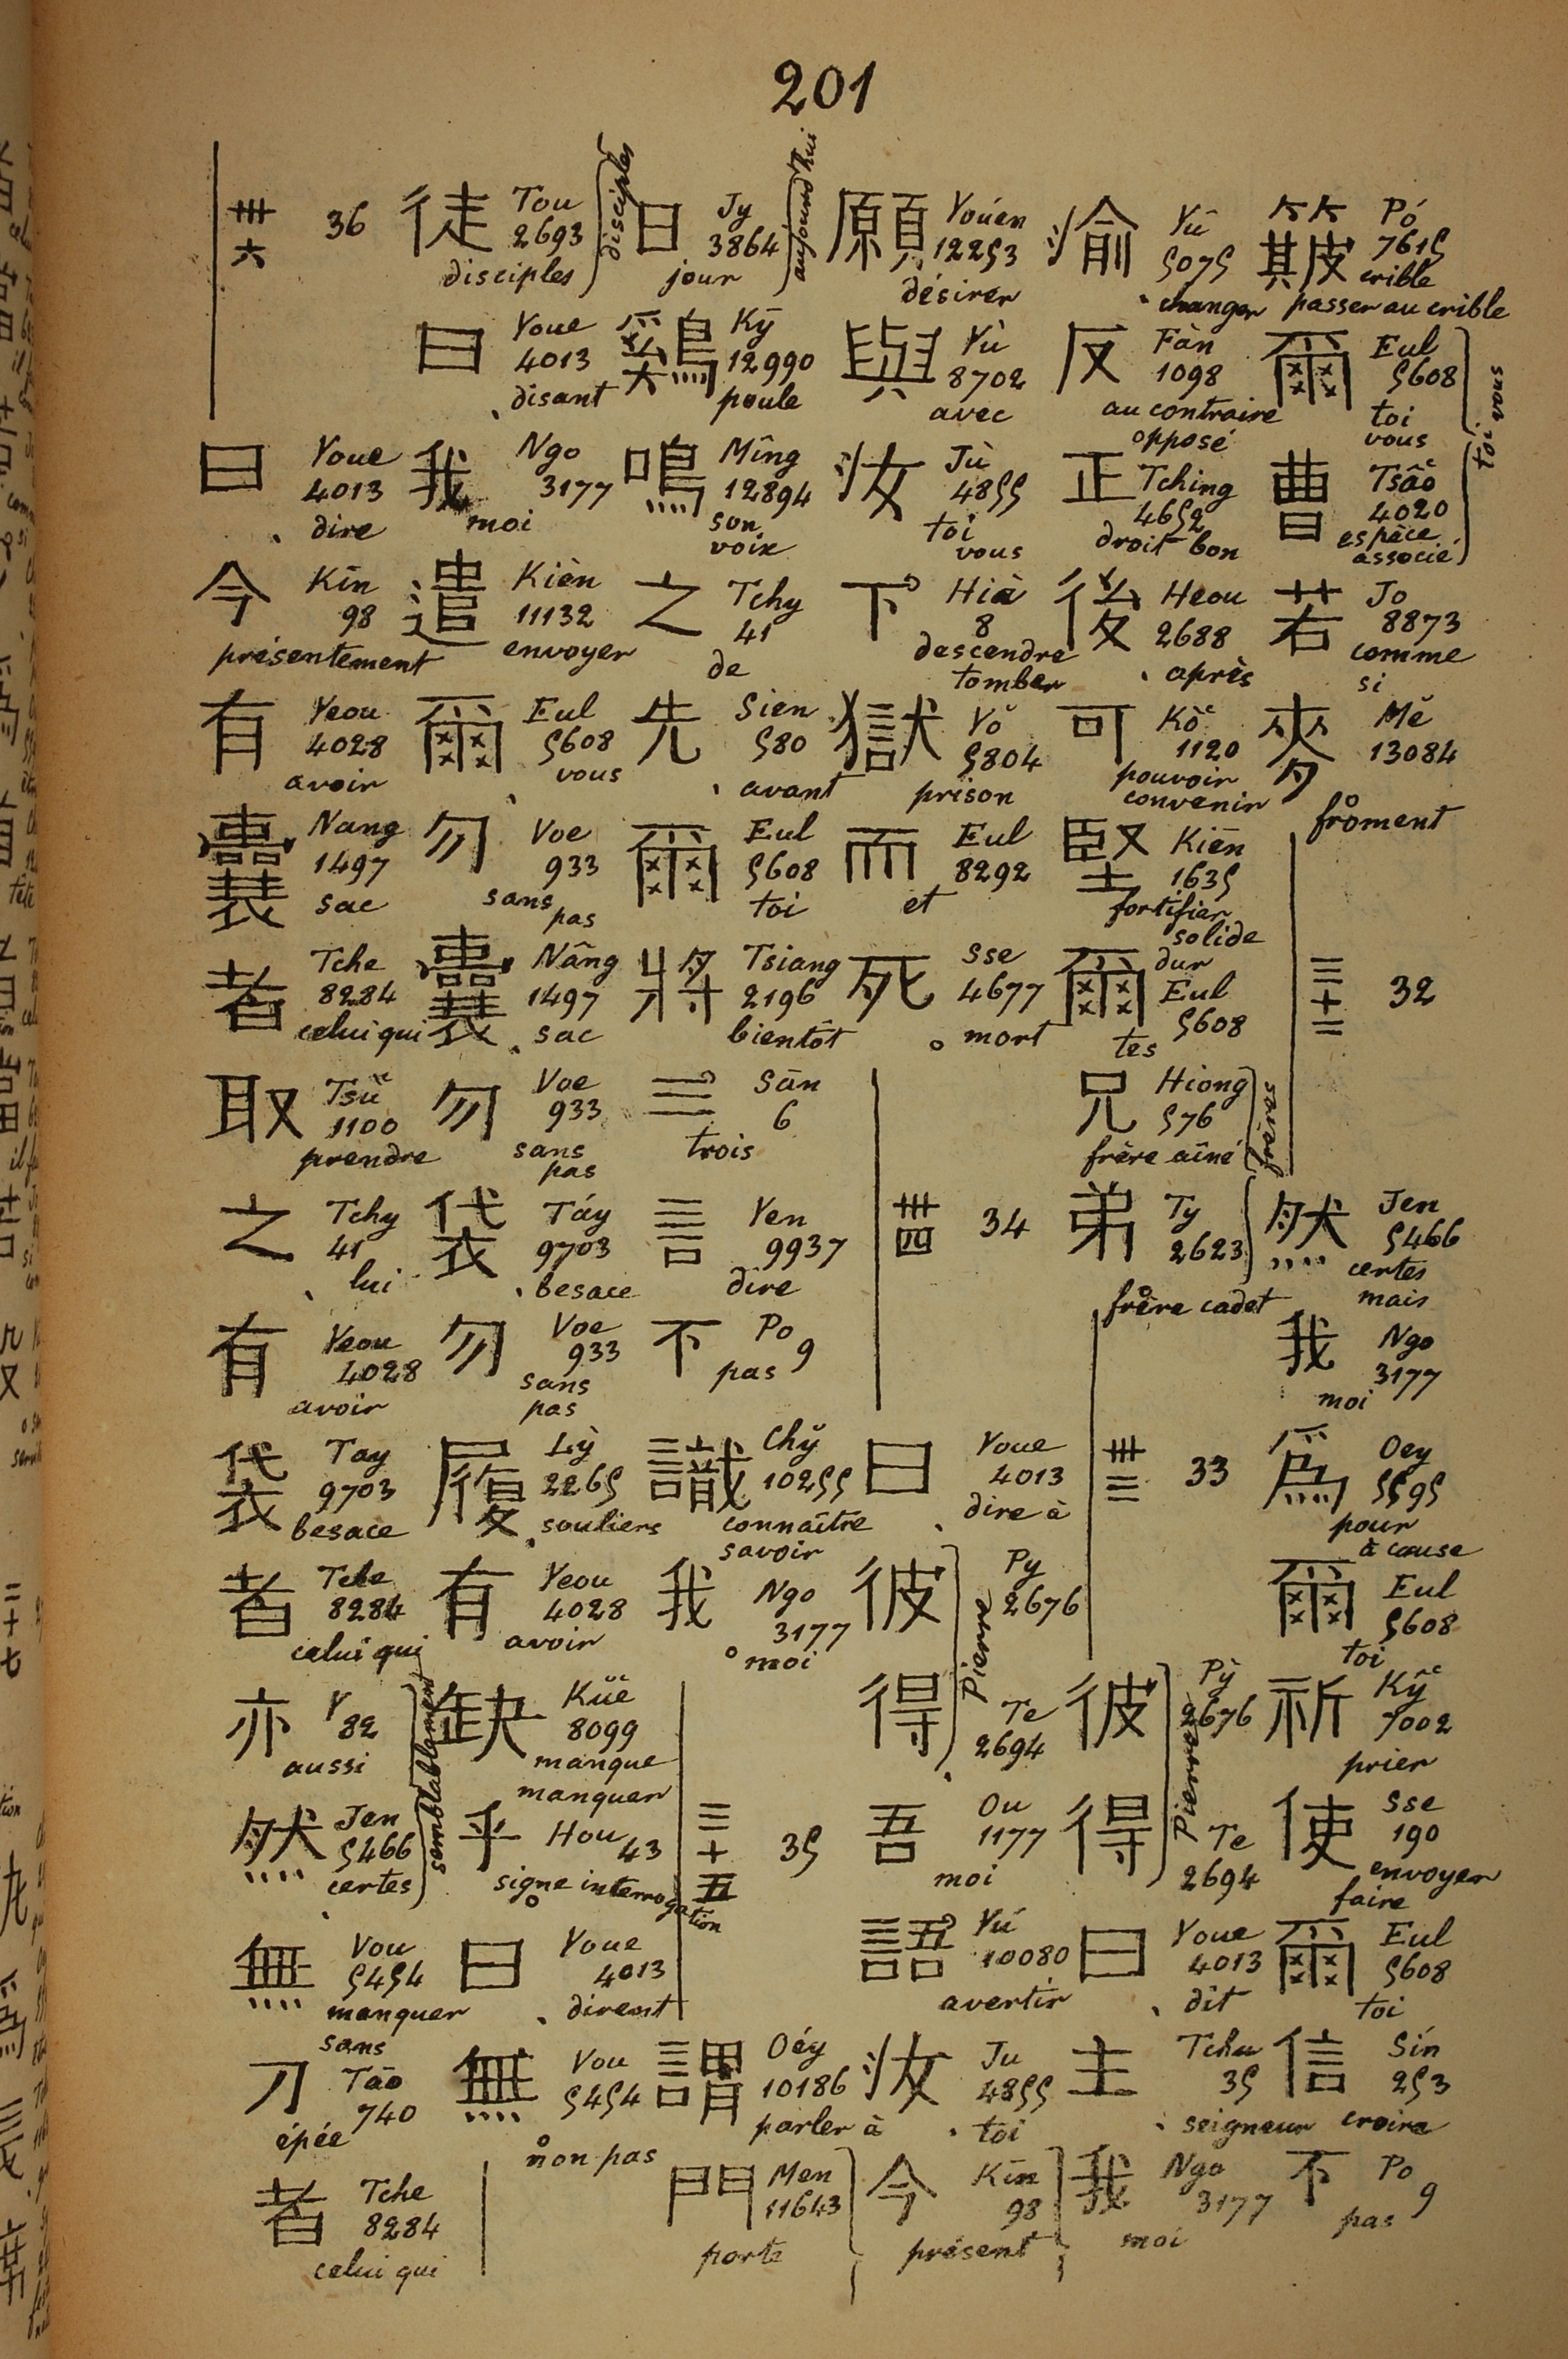 201
簸 Pó 7615 crible passer au crible
爾 Eul 5608 toi vous
曹 Tsâo 4020 espèce associé
toi, vous
若 Jo 8873 comme si
麥 Mĕ 13084 froment
三十二 32
然 Jen 5466 certes mais
我 Ngo 3177 moi
爲 Oey 5595 pour à cause
爾 Eul 5608 toi
祈 Ky̆ 7002 prier
使 Sse 190 envoyer faire
爾 Eul 5608 toi
信 Sín 253 croire
不 Po 9 pas
渝 Yû 5075 changer
反 Fàn 1098 au contraire opposé
正 Tching 4652 droit bon
後 Heou 2688 après
可 Kŏ 1120 pouvoir convenir
堅 Kiēn 1635 fortifier solide dur
爾 Eul 5608 tes
兄 Hiong 576 frère aîné
弟 Ty 2623 frère cadet
frères
卅三 33
彼 Pỳ 2676
得 Te 2694
Pierre
曰 Youe 4013 dit
主 Tchu 35 seigneur
我 Ngo 3177 moi
願 Yoúen 12253 désirer
與 Yù 8702 avec
汝 Jù 4855 toi vous
下 Hià 8 descendre tomber
獄 Yŏ 5804 prison
而 Eul 8292 et
死 Sse 4677 mort
卅四 34
曰 Youe 4013 dire à
彼 Py 2676
得 Te 2694
Pierre
吾 Ou 1177 moi
語 Yú 10080 avertir
汝 Ju 4855 toi
今 Kīn 98 présent
日 Jy 3864 jour
aujourd'hui
鷄 Kȳ 12990 poule
鳴 Mîng 12894 son voix
之 Tchy 41 de
先 Sien 580 avant
爾 Eul 5608 toi
將 Tsiang 2196 bientôt
三 Sān 6 trois
言 Yen 9937 dire
不 Po 9 pas
識 Chy̆ 10255 connaître savoir
我 Ngo 3177 moi
三十五 35
謂 Oéy 10186 parler à
門 Men 11643 porte
徒 Tou 2693 disciples
disciples
曰 Youe 4013 disant
我 Ngo 3177 moi
遣 Kièn 11132 envoyer
爾 Eul 5608 vous
勿 Voe 933 sans pas
囊 Nâng 1497 sac
勿 Voe 933 sans pas
袋 Táy 9703 besace
勿 Voe 933 sans pas
履 Lỳ 2265 souliers
有 Yeou 4028 avoir
缺 Kŭĕ 8099 manque manquer
乎 Hou 43 signe interrogation
曰 Youe 4013 dirent
無 Vou 5454 non pas
卅六 36
曰 Youe 4013 dire
今 Kīn 98 présentement
有 Yeou 4028 avoir
囊 Nang 1497 sac
者 Tche 8284 celui qui
取 Tsŭ 1100 prendre
之 Tchy 41 lui
有 Yeou 4028 avoir
袋 Tay 9703 besace
者 Tche 8284 celui qui
亦 Y 82 aussi
然 Jen 5466 certes
semblablement
無 Vou 5454 manquer sans
刀 Tāo 740 épée
者 Tche 8284 celui qui